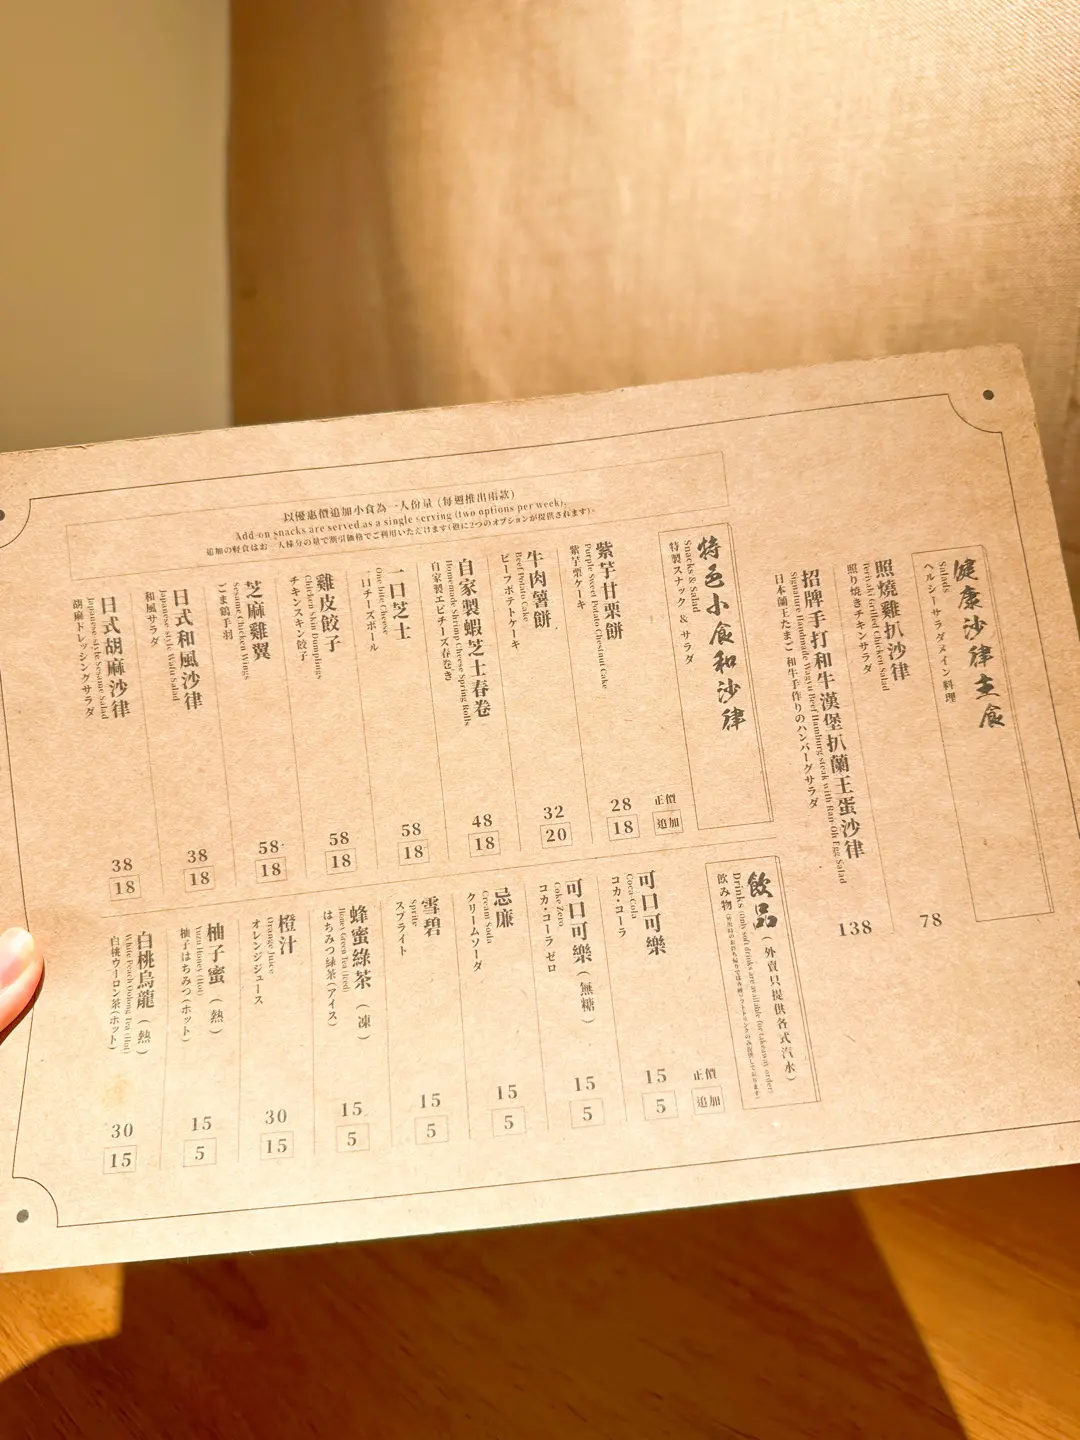 健康沙律主食
Salads
ヘルシーサラダメイン料理
照燒雞扒沙律
Teriyaki Grilled Chicken Salad
照り焼きチキンサラダ
78
招牌手打和牛漢堡扒蘭王蛋沙律
Signature Handmade Wagyu Beef Hamburg steak with Ran-Oh Egg Salad
日本蘭王たまご 和牛手作りのハンバーグサラダ
138
以優惠價追加小食為一人份量 (每週推出兩款)
Add-on snacks are served as a single serving (two options per week).
追加の軽食はお一人様分の量で割引価格でご利用いただけます(週に2つのオプションが提供されます)。
特色小食和沙律
Snacks & Salad
特製スナック & サラダ
正價
追加
紫芋甘栗餅
Purple Sweet Potato Chestnut Cake
紫芋栗ケーキ
28
18
牛肉薯餅
Beef Potato Cake
ビーフポテトケーキ
32
20
自家製蝦芝士春卷
Homemade Shrimp Cheese Spring Rolls
自家製エビチーズ春巻き
48
18
一口芝士
One bite Cheese
一口チーズボール
58
18
雞皮餃子
Chicken Skin Dumplings
チキンスキン餃子
58
18
芝麻雞翼
Sesame Chicken Wings
ごま鶏手羽
58
18
日式和風沙律
Japanese style Wafu Salad
和風サラダ
38
18
日式胡麻沙律
Japanese style Sesame Salad
胡麻ドレッシングサラダ
38
18
飲品 (外賣只提供各式汽水)
Drinks (Only soft drinks are available for takeaway order)
飲み物
正價
追加
可口可樂
Coca-Cola
コカ・コーラ
15
5
可口可樂 (無糖)
Coke Zero
コカ・コーラ ゼロ
15
5
忌廉
Cream Soda
クリームソーダ
15
5
雪碧
Sprite
スプライト
15
5
蜂蜜綠茶 (凍)
Honey Green Tea (Iced)
はちみつ緑茶 (アイス)
15
5
橙汁
Orange Juice
オレンジジュース
30
15
柚子蜜 (熱)
Yuzu Honey (Hot)
柚子はちみつ (ホット)
15
5
白桃烏龍 (熱)
White Peach Oolong Tea (Hot)
白桃ウーロン茶 (ホット)
30
15